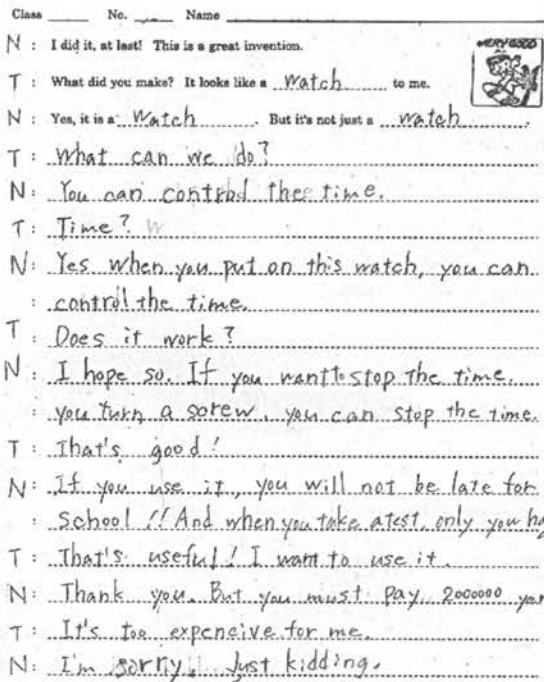 Class No. Name
N: I did it, at last! This is a great invention.
VERY GOOD
T: What did you make? It looks like a watch to me.
N: Yes, it is a watch. But it's not just a watch.
T: What can we do?
N: You can control the time.
T: Time?
N: Yes when you put on this watch, you can
: control the time.
T: Does it work?
N: I hope so. If you want to stop the time.
: you turn a screw. you can stop the time.
T: That's good!
N: If you use it, you will not be late for
: School!! And when you take a test, only you
T: That's useful! I want to use it.
N: Thank you. But you must pay 2000000 yen
T: It's too expencive for me.
N: I'm sorry. Just kidding.